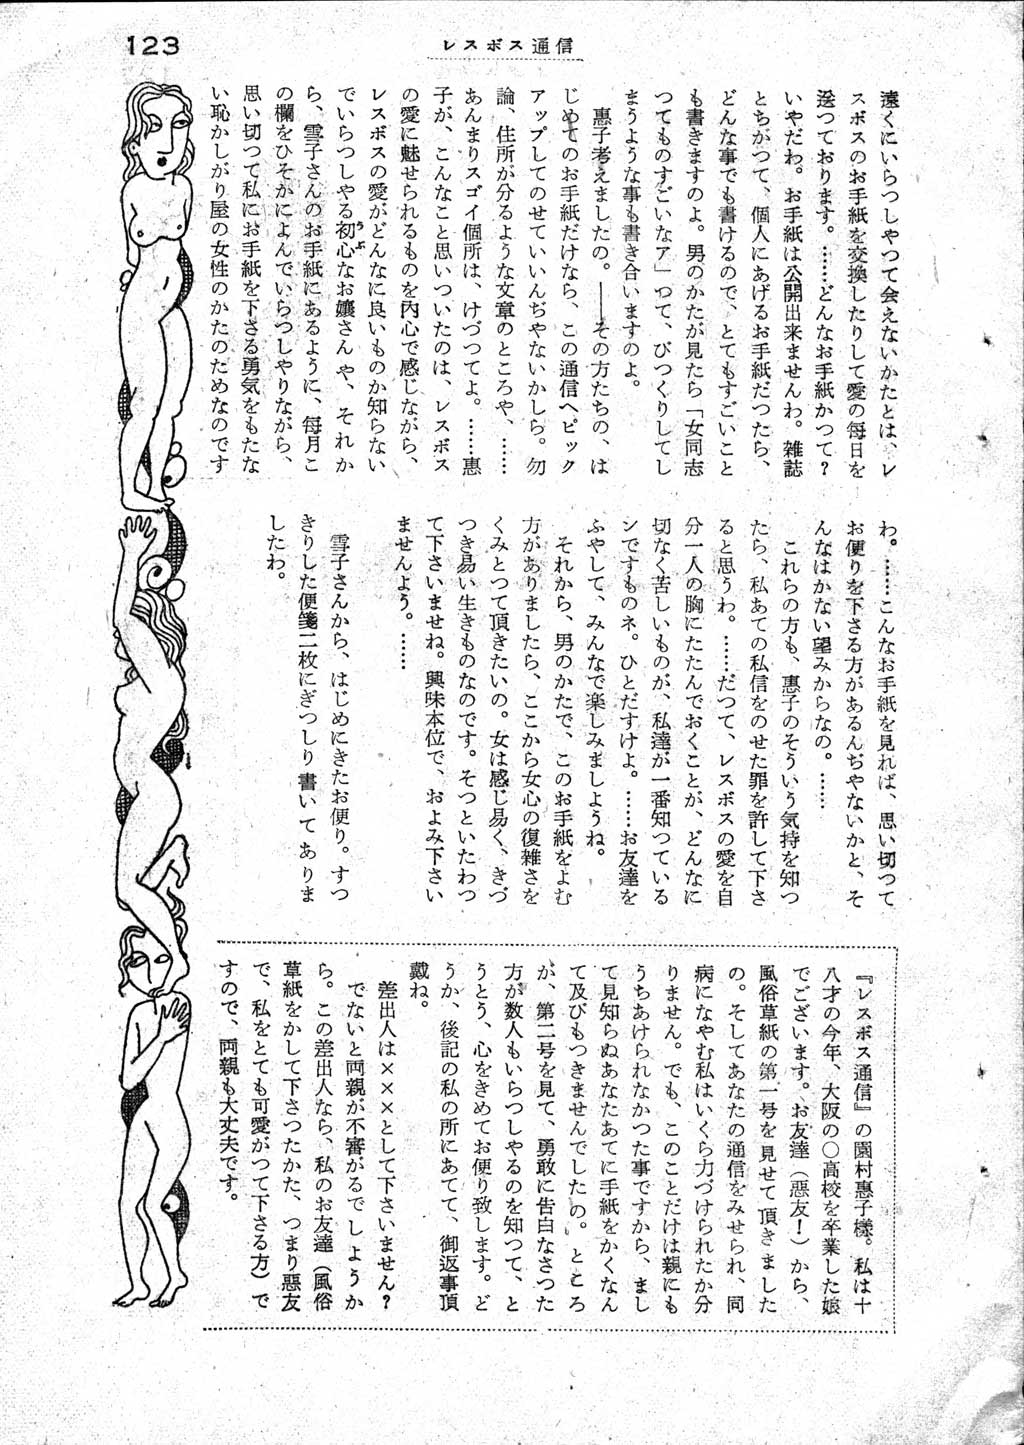 123
レスボス通信
遠くにいらつしやつて会えないかたとは、レ
スボスのお手紙を交換したりして愛の毎日を
送つております。……どんなお手紙かつて?
いやだわ。お手紙は公開出来ませんわ。雑誌
とちがつて、個人にあげるお手紙だつたら、
どんな事でも書けるので、とてもすごいこと
も書きますのよ。男のかたが見たら「女同志
つてものすごいなァ」つて、びつくりしてし
まうような事も書き合いますのよ。
惠子考えましたの。――その方たちの、は
じめてのお手紙だけなら、この通信へピック
アップしてのせていいんぢやないかしら。勿
論、住所が分るような文章のところや、……
あんまりスゴイ個所は、けづつてよ。……惠
子が、こんなこと思いついたのは、レスボス
の愛に魅せられるものを内心で感じながら、
レスボスの愛がどんなに良いものか知らない
でいらつしやる初心なお嬢さんや、それか
うぶ
ら、雪子さんのお手紙にあるように、毎月こ
の欄をひそかによんでいらつしやりながら、
思い切つて私にお手紙を下さる勇気をもたな
い恥かしがり屋の女性のかたのためなのです
わ。……こんなお手紙を見れば、思い切つて
お便りを下さる方があるんぢやないかと、そ
んなはかない望みからなの。……
これらの方も、惠子のそういう気持を知つ
たら、私あての私信をのせた罪を許して下さ
ると思うわ。……だつて、レスボスの愛を自
分一人の胸にたたんでおくことが、どんなに
切なく苦しいものか、私達が一番知つている
シですものネ。ひとだすけよ。……お友達を
ふやして、みんなで楽しみましようね。
それから、男のかたで、このお手紙をよむ
方がありましたら、ここから女心の復雑さを
くみとつて頂きたいの。女は感じ易く、きづ
つき易い生きものなのです。そつといたわつ
て下さいませね。興味本位で、およみ下さい
ませんよう。……
雪子さんから、はじめにきたお便り。すつ
きりした便箋二枚にぎつしり書いてありま
したわ。
『レスボス通信』の園村惠子様。私は十
八才の今年、大阪の○高校を卒業した娘
でございます。お友達(惡友!)から、
風俗草紙の第一号を見せて頂きました
の。そしてあなたの通信をみせられ、同
病になやむ私はいくら力づけられたか分
りません。でも、このことだけは親にも
うちあけられなかつた事ですから、まし
て見知らぬあなたあてに手紙をかくなん
て及びもつきませんでしたの。ところ
が、第二号を見て、勇敢に告白なさつた
方が数人もいらつしやるのを知つて、と
うとう、心をきめてお便り致します。ど
うか、後記の私の所にあてて、御返事頂
戴ね。
差出人は×××として下さいません?
でないと両親が不審がるでしようか
ら。この差出人なら、私のお友達(風俗
草紙をかして下さつたかた、つまり惡友
で、私をとても可愛がつて下さる方)で
すので、両親も大丈夫です。